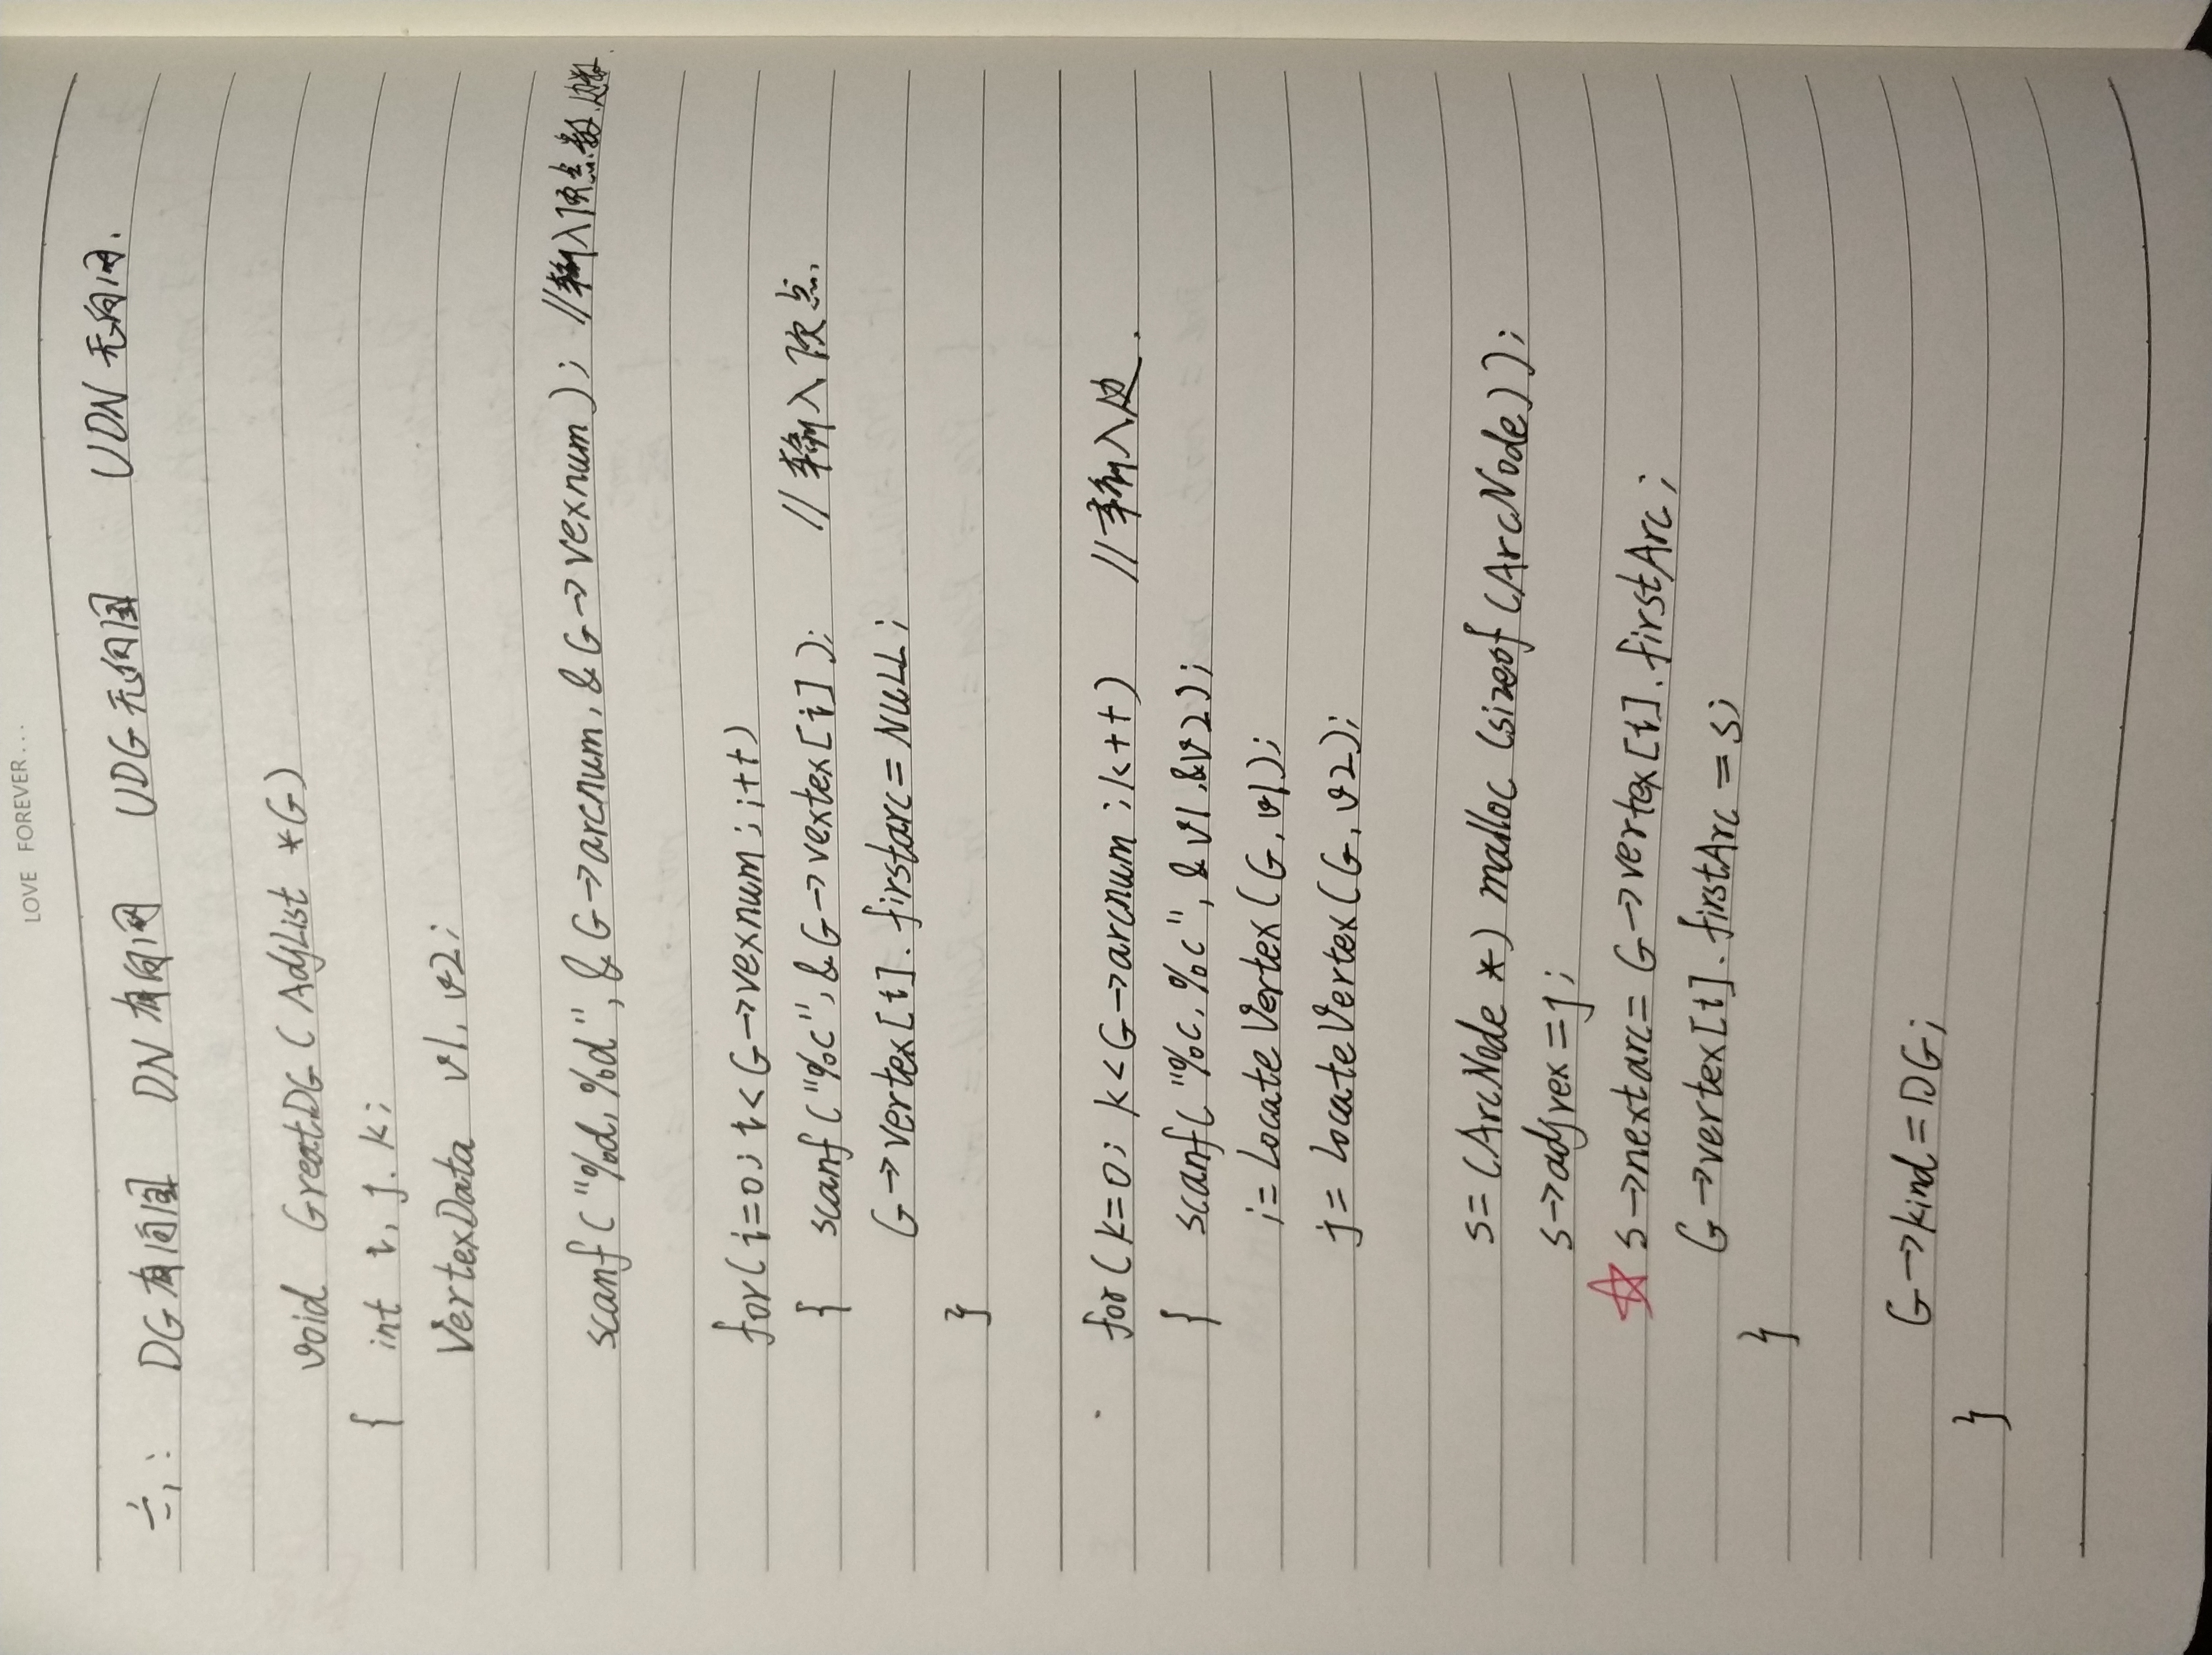 LOVE FOREVER...
六、: DG有向图 DN有向网 UDG无向图 UDN无向网.
void GreatDG(AdjList *G)
{ int i, j. k;
VertexData v1, v2;
scanf("%d,%d", &G->arcnum, &G->vexnum); //输入顶点数.边数.
for(i=0; i<G->vexnum; i++)
{ scanf("%c", &G->vextex[i]); //输入顶点.
G->vertex[i]. firstarc=NULL;
}
for(k=0; k<G->arcnum; k++) //输入边.
{ scanf("%c,%c", &v1,&v2);
i=LocateVertex(G, v1);
j=LocateVertex(G, v2);
s=(ArcNode *) malloc (sizeof(ArcNode));
s->adjvex=j;
☆ s->nextarc= G->vertex[i]. firstArc;
G->vertex[i]. firstArc = s;
}
G->kind=DG;
}